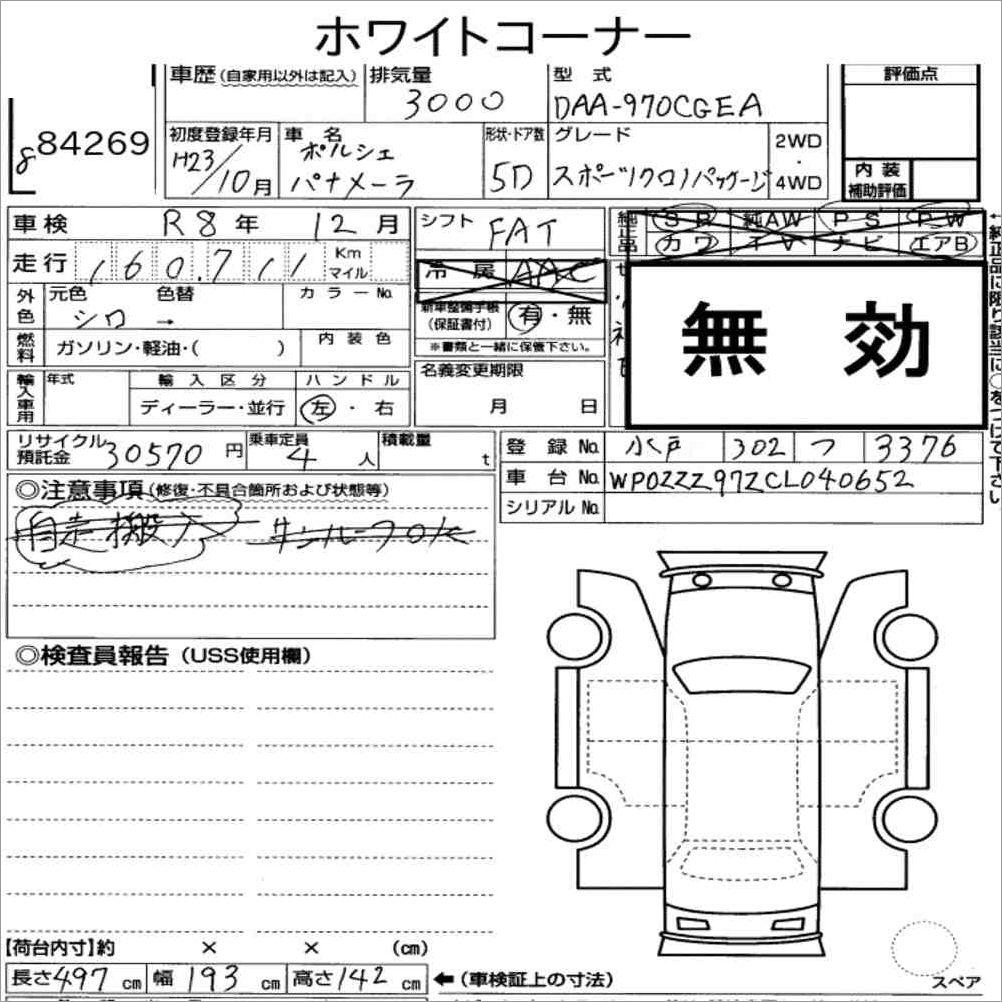 ホワイトコーナー
車歴(自家用以外は記入) 排気量 型式 評価点
3000 DAA-970CGEA
8 84269
初度登録年月 車名 形状・ドア数 グレード 2WD・4WD
H23/10月 ポルシェ パナメーラ 5D スポーツクロノパッケージ
内装補助評価
車検 R8年 12月 シフト FAT
純正品 SR 純AW PS PW
カワ TV ナビ エアB
走行 160,711 Km マイル
冷房 AAC
外色 元色 色替 カラーNo.
シロ →
新車整備手帳(保証書付) 有・無
※書類と一緒に保管下さい。
無効
燃料 ガソリン・軽油・( ) 内装色
輸入車用 年式 輸入区分 ハンドル
ディーラー・並行 左・右
名義変更期限
月 日
リサイクル預託金 30570円 乗車定員 4人 積載量 t
登録No. 水戸 302 つ 3376
車台No. WP0ZZZ97ZCL040652
シリアルNo.
◎注意事項(修復・不具合箇所および状態等)
自走搬入 サンルーフOK
◎検査員報告(USS使用欄)
【荷台内寸】約 × × (cm)
長さ497cm 幅193cm 高さ142cm ←(車検証上の寸法)
スペア